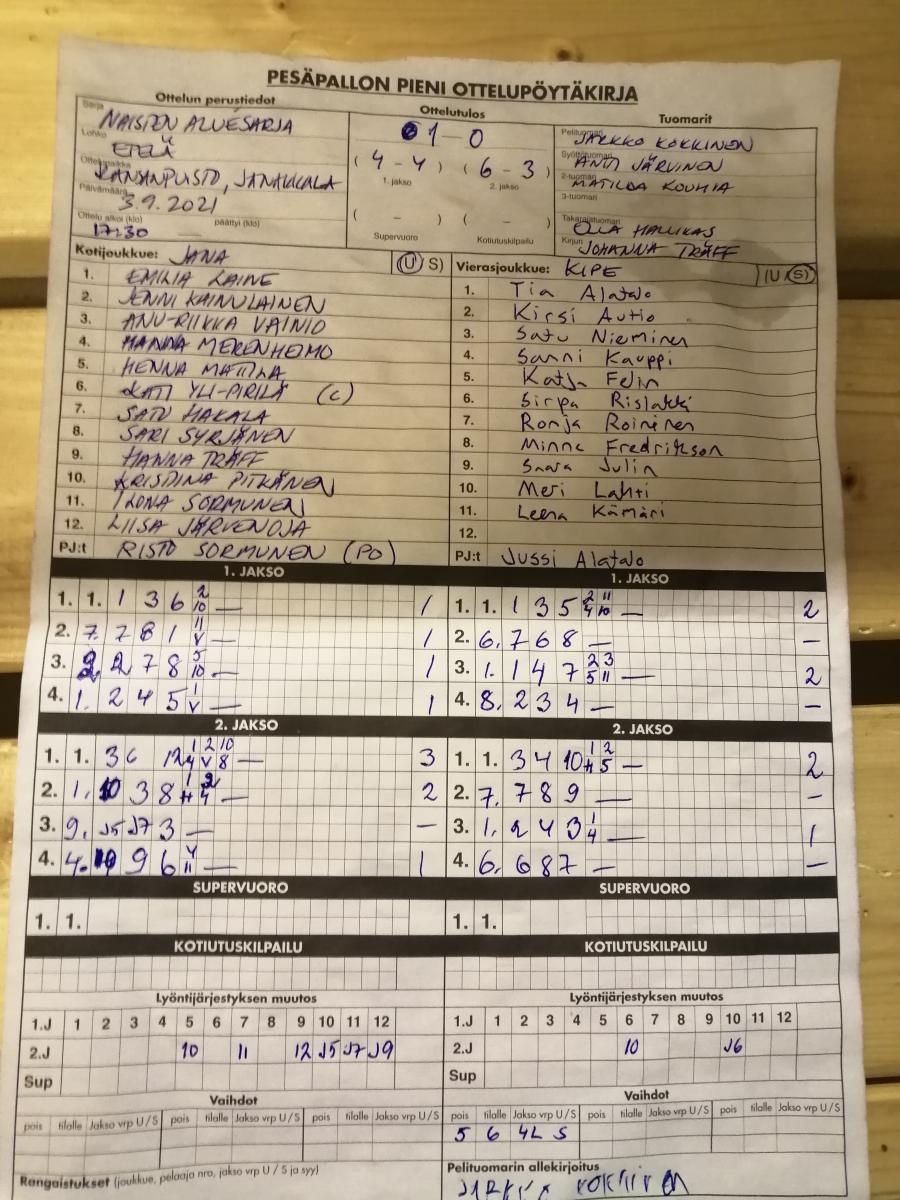 PESÄPALLON PIENI OTTELUPÖYTÄKIRJA
Ottelun perustiedot
Sarja NAISTEN ALUESARJA
Lohko ETELÄ
Ottelupaikka KANSANPUISTO, JANAKKALA
Päivämäärä 3.9.2021
Ottelu alkoi (klo) 17:30 päättyi (klo) —
Ottelutulos
1 - 0
( 4 - 4 ) ( 6 - 3 )
1. jakso 2. jakso
( - ) ( - )
Supervuoro Kotiutuskilpailu
Tuomarit
Pelituomari JARKKO KOKKINEN
Syöttötuomari ANTI JÄRVINEN
2-tuomari MATILDA KOUHIA
3-tuomari
Takarajatuomari OLLA HALLIKAS
Kirjuri JOHANNA TRÄFF
Kotijoukkue: JANA (U S)
1. EMILIA LAINE
2. JENNI KAINULAINEN
3. ANU-RIIKKA VAINIO
4. HANNA MERENHEIMO
5. HENNA MATTILA
6. KATI YLI-PIRILÄ (C)
7. SATU HAKALA
8. SARI SYRJÄNEN
9. HANNA TRÄFF
10. KRISTIINA PITKÄNEN
11. ILONA SORMUNEN
12. LIISA JÄRVENOJA
PJ:t RISTO SORMUNEN (PO)
Vierasjoukkue: KIPE (U S)
1. Tia Alatalo
2. Kirsi Autio
3. Satu Nieminen
4. Sanni Kauppi
5. Katja Felin
6. Sirpa Rislakki
7. Ronja Roininen
8. Minna Fredrikson
9. Saara Julin
10. Meri Lahti
11. Leena Kämäri
12.
PJ:t Jussi Alatalo
1. JAKSO
1. 1. 1 3 6 2 10 — 1
2. 7. 7 8 1 11 V — 1
3. 2. 2 7 8 5 10 — 1
4. 1. 2 4 5 1 V — 1
1. JAKSO
1. 1. 1 3 5 2 4 11 10 — 2
2. 6. 7 6 8 — –
3. 1. 1 4 7 2 5 3 11 — 2
4. 8. 2 3 4 — –
2. JAKSO
1. 1. 3 6 12 1 4 2 V 10 8 — 3
2. 1. 10 3 8 — 2
3. 9. J5 J7 3 — –
4. 4. 9 6 — 1
2. JAKSO
1. 1. 3 4 10 1 H 2 5 — 2
2. 7. 7 8 9 — –
3. 1. 2 4 3 1 4 — 1
4. 6. 6 8 7 — –
SUPERVUORO
1. 1.
SUPERVUORO
1. 1.
KOTIUTUSKILPAILU
KOTIUTUSKILPAILU
Lyöntijärjestyksen muutos
1.J 1 2 3 4 5 6 7 8 9 10 11 12
2.J 10 11 12 J5 J7 J9
Sup
Lyöntijärjestyksen muutos
1.J 1 2 3 4 5 6 7 8 9 10 11 12
2.J 10 J6
Sup
Vaihdot
pois tilalle Jakso vrp U / S pois tilalle Jakso vrp U / S pois tilalle Jakso vrp U / S
Vaihdot
pois tilalle Jakso vrp U / S pois tilalle Jakso vrp U / S pois tilalle Jakso vrp U / S
5 6 4L S
Rangaistukset (joukkue, pelaaja nro, jakso vrp U / S ja syy)
Pelituomarin allekirjoitus